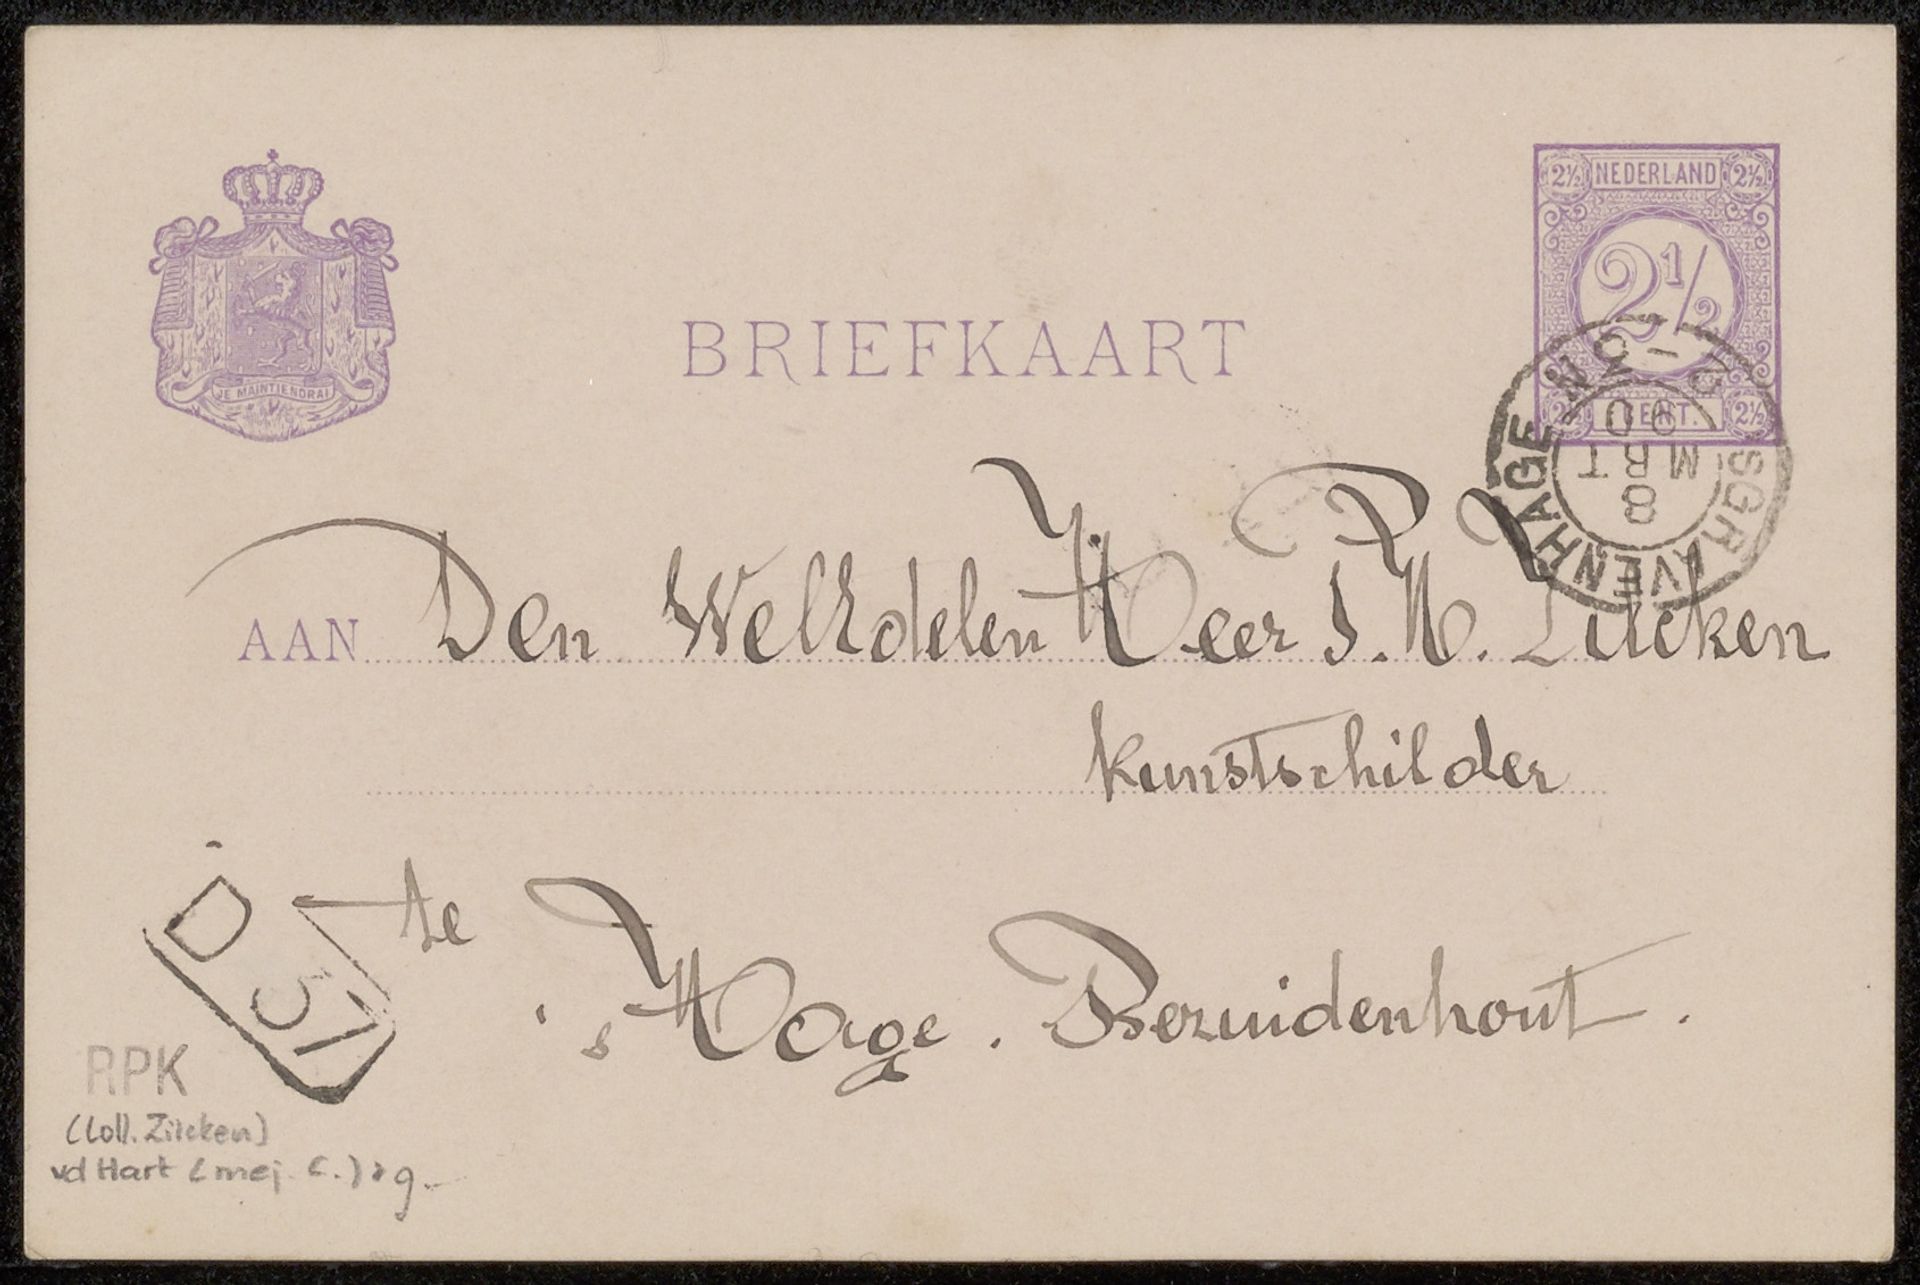 BRIEFKAART
JE MAINTIENDRAI
2½ NEDERLAND 2½
2½
2½ CENT. 2½
'SGRAVENHAGE
8
MRT
90
AAN Den WelEdelen Heer P. M. Zilcken
Kunstschilder
te
's Hage. Bezuidenhout.
D 37
RPK
(Coll. Zilcken)
vd Hart (mej. C.)